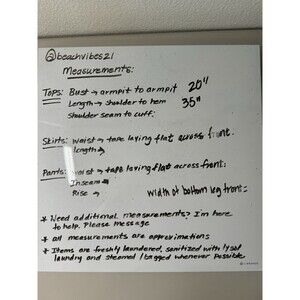 @beachvibes21
measurements:
Tops: Bust → armpit to armpit 20"
Length → Shoulder to hem 35"
Shoulder seam to cuff:
Skirts: waist → tape laying flat across front.
length →
Pants: waist → tape laying flat across front:
Inseam →
Rise → Width of bottom leg front:
* Need additional measurements? I'm here
to help. Please message
* all measurements are approximations
* Items are freshly laundered, sanitized with lysol
laundry and steamed / tagged whenever possible